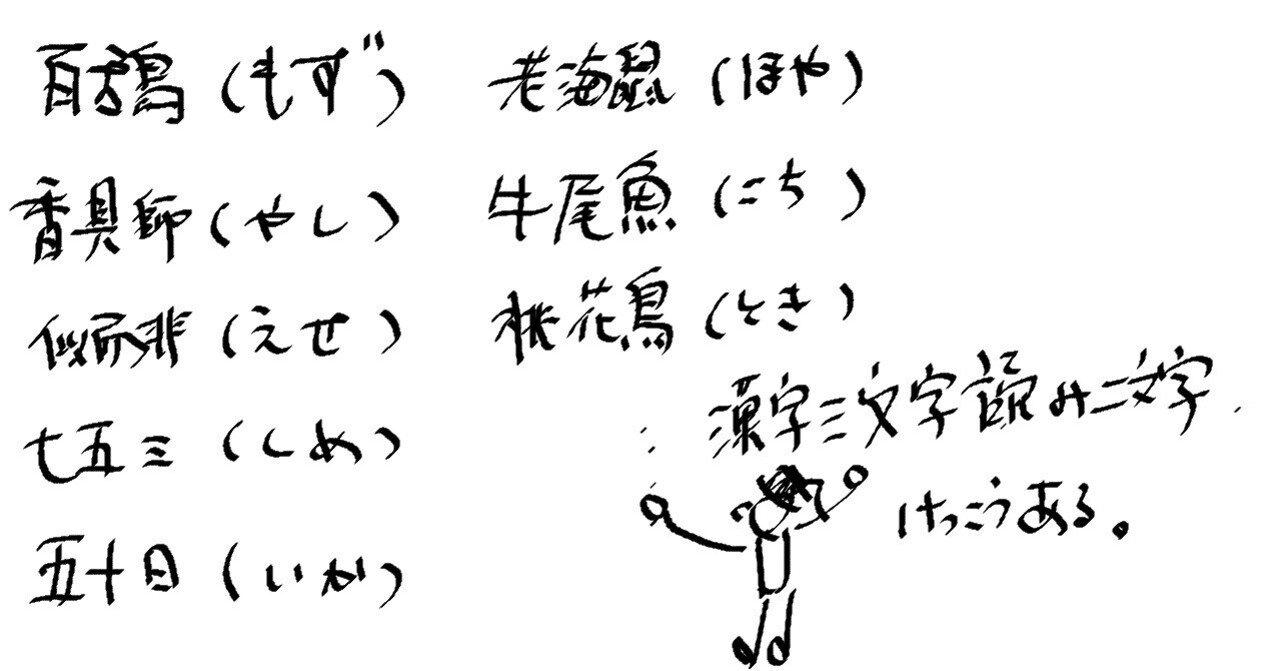 百舌鳥(もず)
香具師(やし)
似而非(えせ)
七五三(しめ)
五十日(いか)
老海鼠(ほや)
牛尾魚(こち)
桃花鳥(とき)
漢字三文字読み二文字
けっこうある。